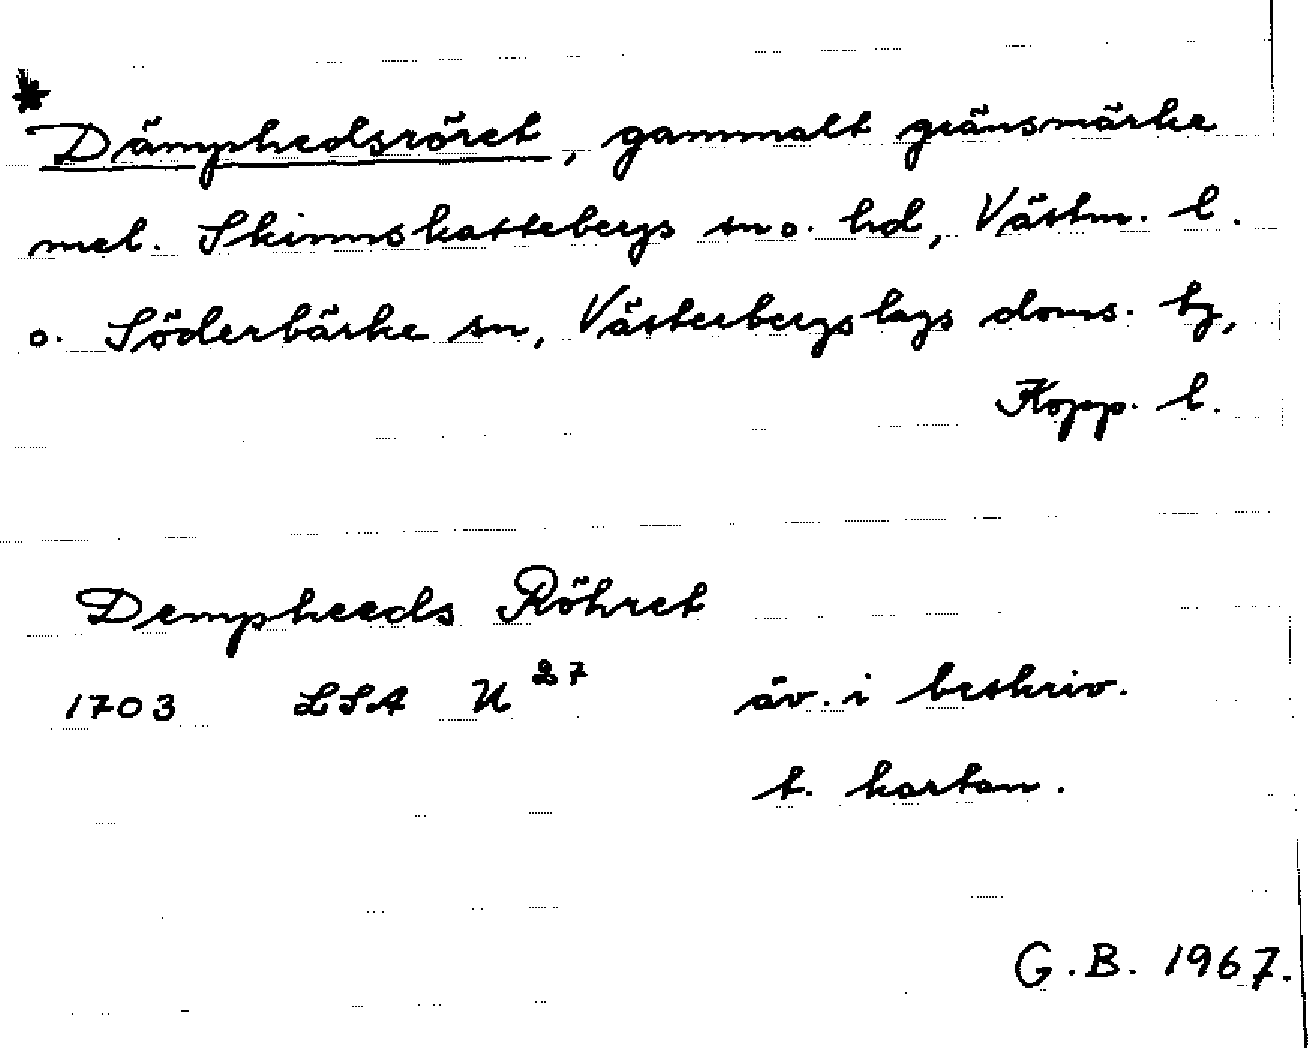 * Dämphedsröret, gammalt gränsmärke
mel. Skinnskattebergs sn o. hd, Västm. l.
o. Söderbärke sn, Västerbergslags doms. tg,
Kopp. l.
Dempheeds Röhret
1703 LSA U 27 äv. i beskriv.
t. kartan.
G.B. 1967.